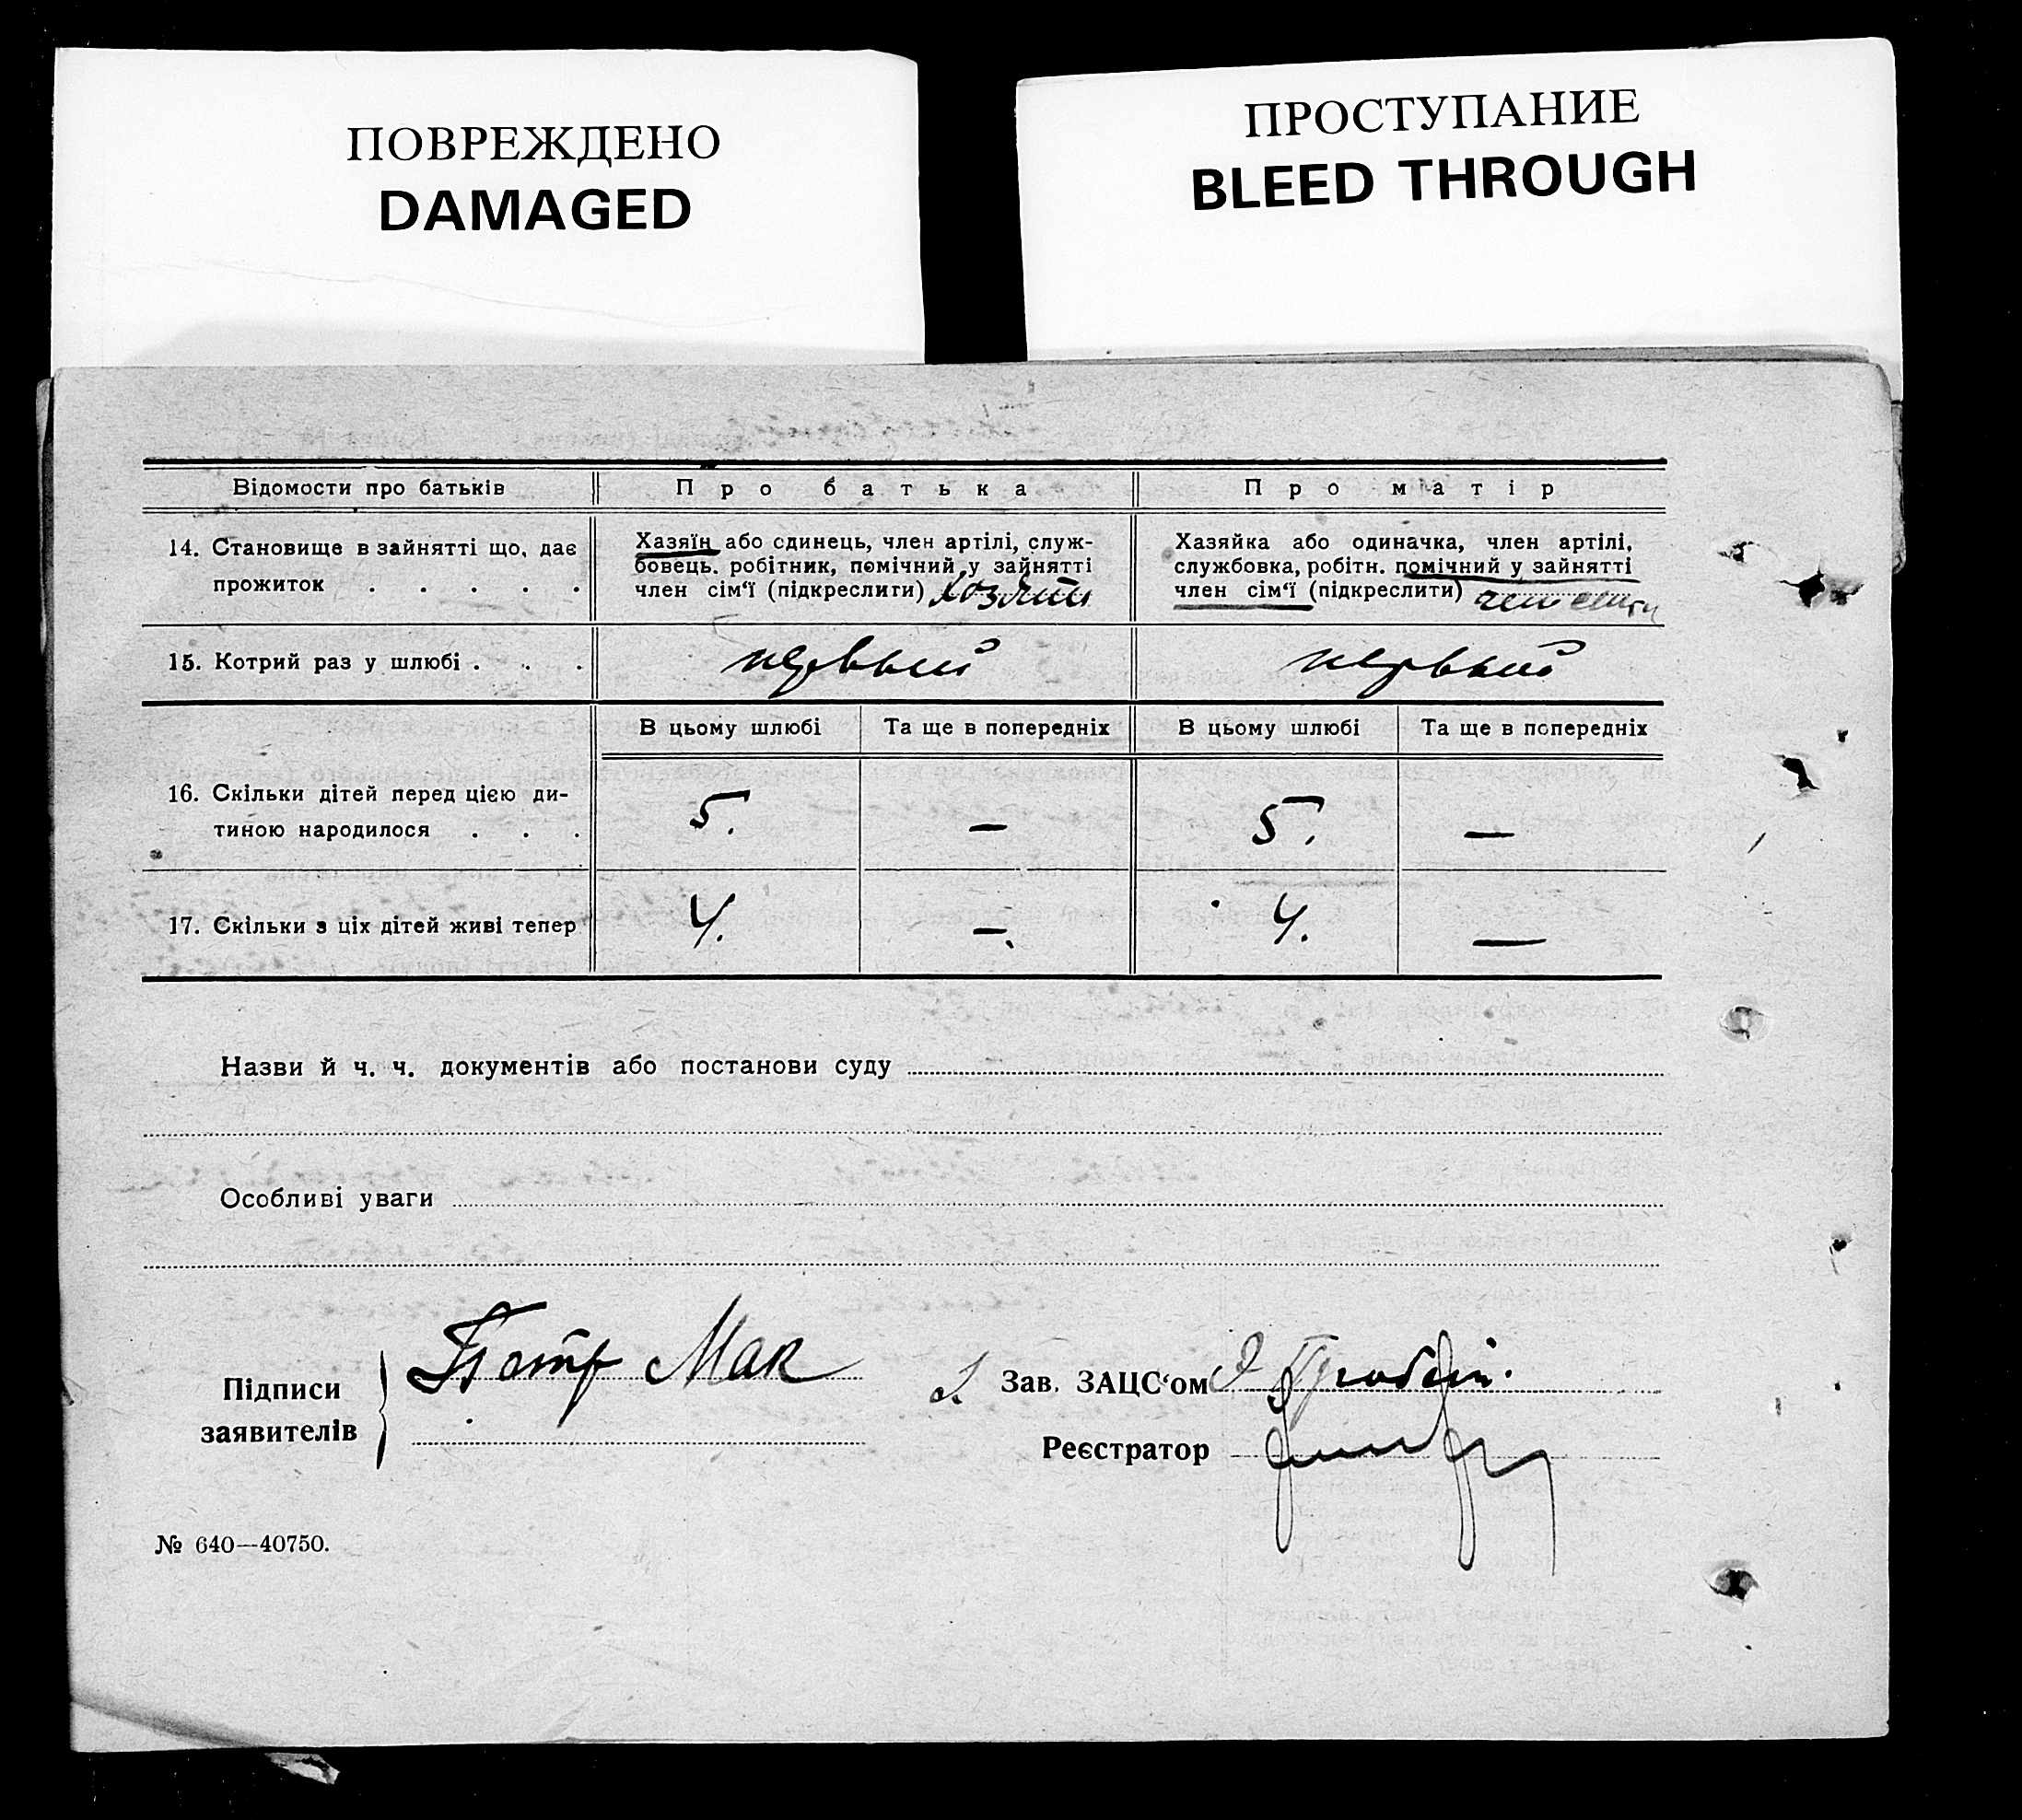 ПОВРЕЖДЕНО
DAMAGED
ПРОСТУПАНИЕ
BLEED THROUGH
Відомости про батьків
Про батька
Про матір
14. Становище в зайнятті що, дає
прожиток . . . . .
Хазяїн або одинець, член артілі, служ-
бовець. робітник, помічний у зайнятті
член сім‘ї (підкреслити) хозяин
Хазяйка або одиначка, член артілі,
службовка, робітн. помічний у зайнятті
член сім‘ї (підкреслити) член
15. Котрий раз у шлюбі . . .
первый
первый
В цьому шлюбі
Та ще в попередніх
В цьому шлюбі
Та ще в попередніх
16. Скільки дітей перед цією ди-
тиною народилося . . .
5.
—
5.
—
17. Скільки з ціх дітей живі тепер
4.
—.
4.
—
Назви й ч. ч. документів або постанови суду
Особливі уваги
Підписи
заявителів
Петр Мак
Зав. ЗАЦС‘ом
Реєстратор
№ 640—40750.